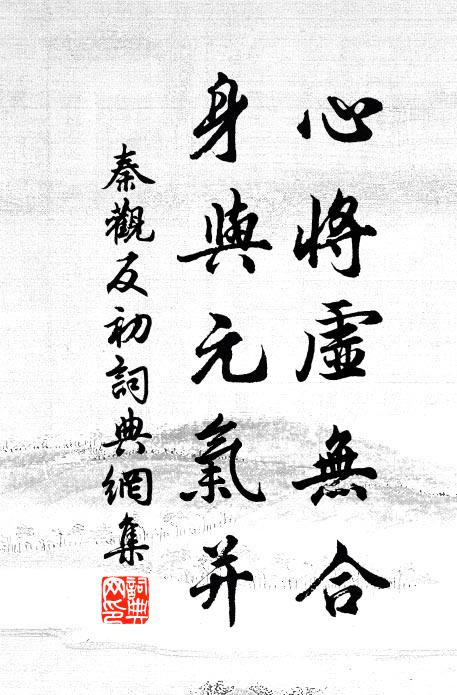 心將虛無合
身與元氣并
秦觀反初詞典網集
詞典網印